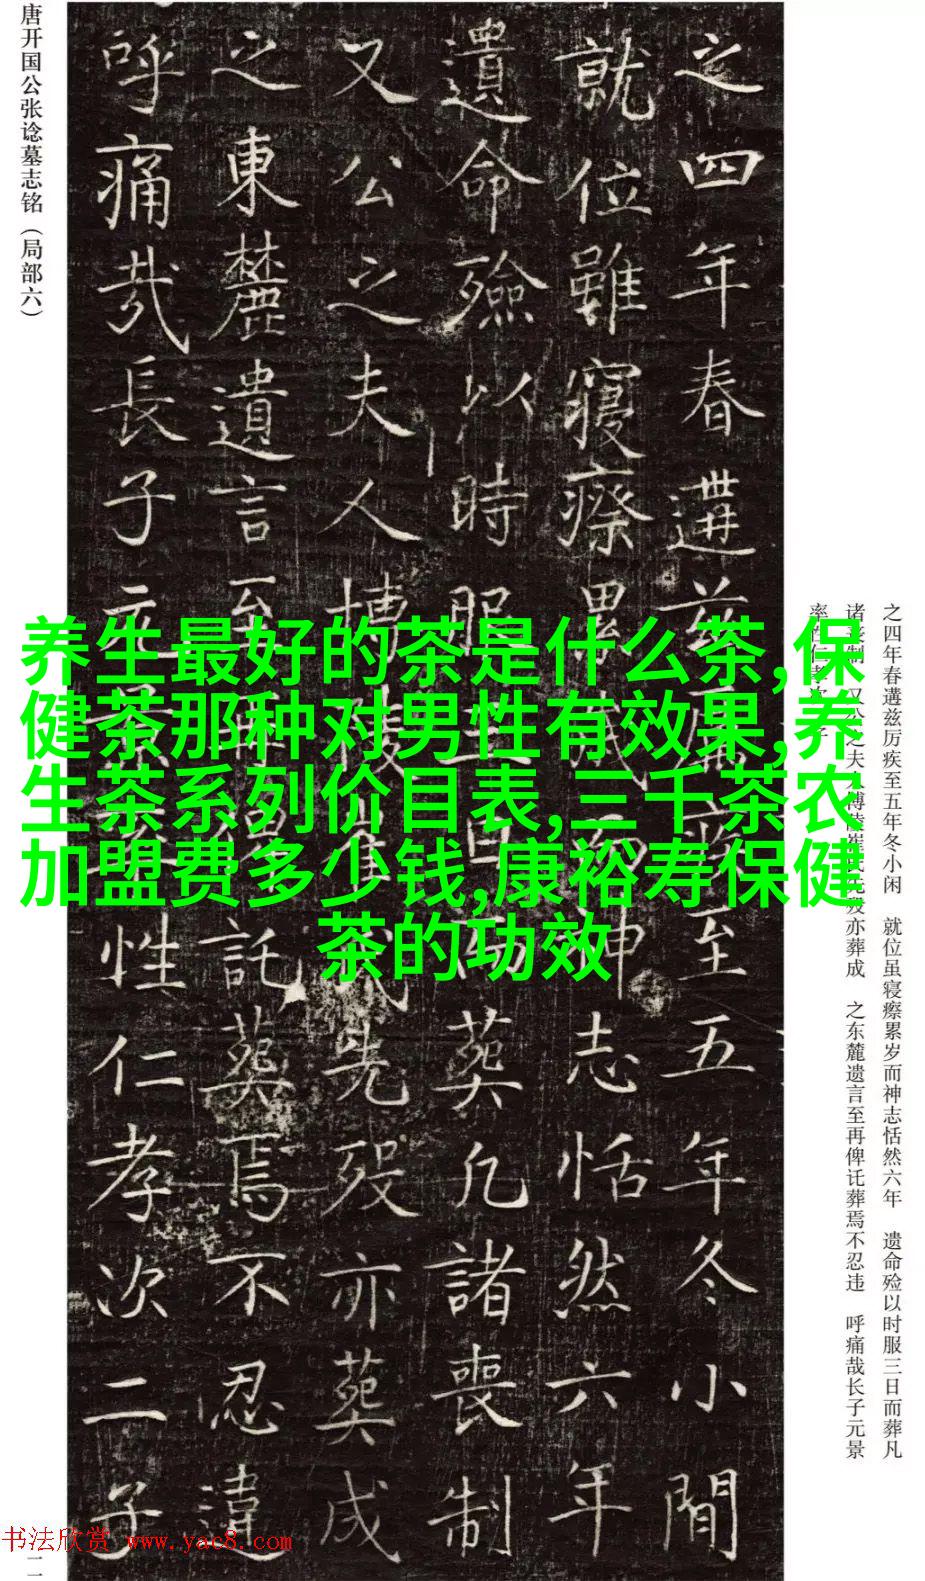 唐开国公张谂墓志铭（局部六）
之四年春遘兹厉疾至五年冬小閒
就位雖寝瘵累歲而神志恬然六年
遺命殮以時服三日而葬凡諸喪制
又公之夫人博陵崔氏先殁亦葬成
之東麓遺言至再俾託葬焉不忍違
呼痛哉長子元景率性仁孝次二子
之四年春遘兹厉疾至五年冬小闲　就位虽寝瘵累岁而神志恬然六年　遗命殓以时服三日而葬凡
诸丧制　又公之夫人博陵崔氏先殁亦葬成　之东麓遗言至再俾讬葬焉不忍违　呼痛哉长子元景
率性仁孝次二子
养生最好的茶是什么茶,保
健茶那种对男性有效果,养
生茶系列价目表,三千茶农
加盟费多少钱,康裕寿保健
茶的功效
书法欣赏 www.yac8.com
二